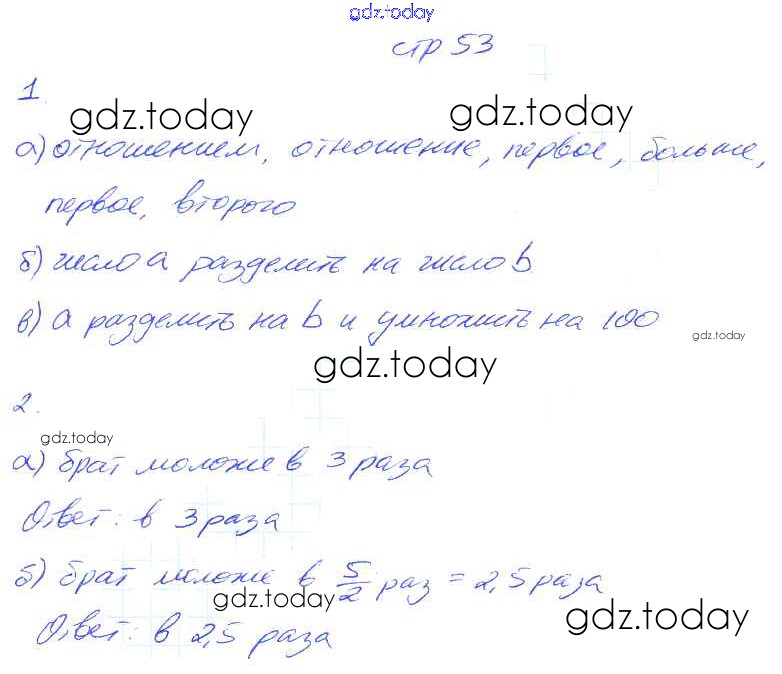 gdz.today
стр 53
1.
gdz.today gdz.today
а) отношением, отношение, первое, больше,
первое, второго
б) число a разделить на число b
в) a разделить на b и умножить на 100
gdz.today
gdz.today
2.
gdz.today
а) брат моложе в 3 раза
Ответ: в 3 раза
б) брат моложе в 5/2 раз = 2,5 раза
gdz.today gdz.today
Ответ: в 2,5 раза